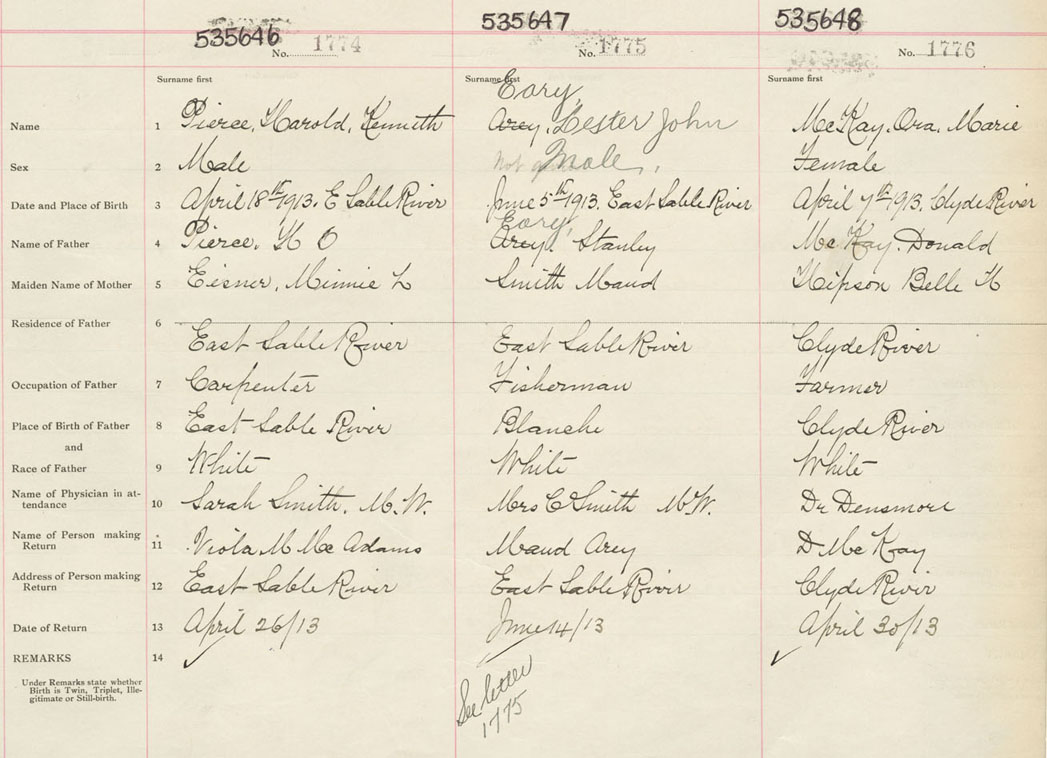 535646 535647 535648
No. 1774 No. 1775 No. 1776
Surname first Surname first Surname first
Eory,
Name 1 Pierce, Harold, Kenneth Arey, Lester John McKay, Ora, Marie
Sex 2 Male Not Male. Female
Date and Place of Birth 3 April 18th 1913. E Sable River June 5th 1913. East Sable River April 7th 1913. Clyde River
Eory,
Name of Father 4 Pierce, H O Arey, Stanley McKay, Donald
Maiden Name of Mother 5 Eisner, Minnie L Smith Maud Hipson Belle H
Residence of Father 6
East Sable River East Sable River Clyde River
Occupation of Father 7 Carpenter Fisherman Farmer
Place of Birth of Father 8 East Sable River Blanche Clyde River
and
Race of Father 9 White White White
Name of Physician in at-
tendance 10 Sarah Smith, M.W. Mrs C Smith M.W. Dr Densmore
Name of Person making
Return 11 Viola M McAdams Maud Arey D McKay
Address of Person making
Return 12 East Sable River East Sable River Clyde River
Date of Return 13 April 26/13 June 14/13 April 30/13
REMARKS 14
Under Remarks state whether
Birth is Twin, Triplet, Ille-
gitimate or Still-birth.
See letter
1775